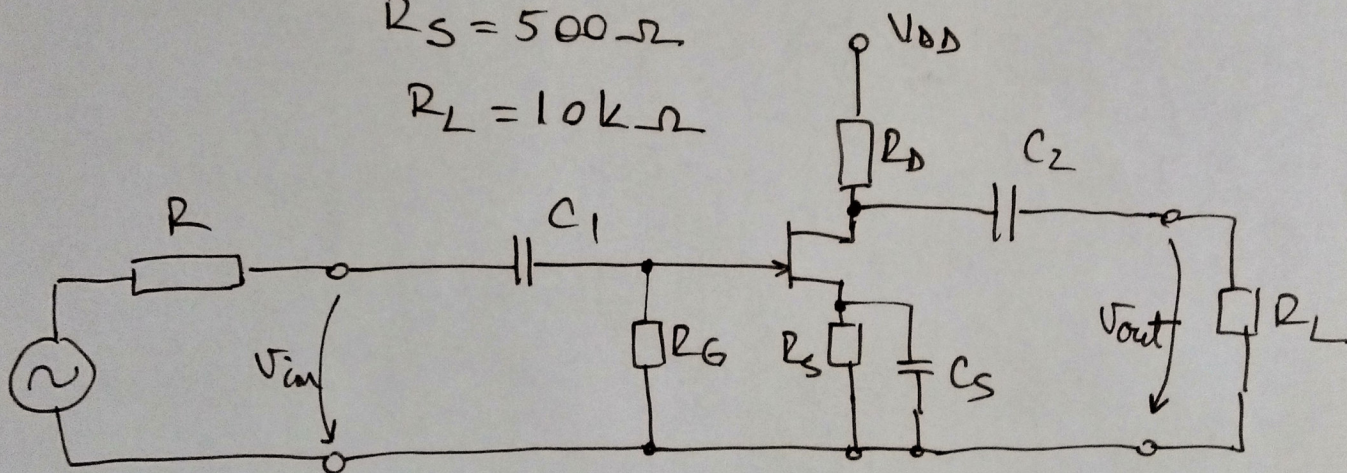 RS = 500 Ω
RL = 10 kΩ
VDD
RD
C2
R
C1
Vin
RG
RS
CS
Vout
RL